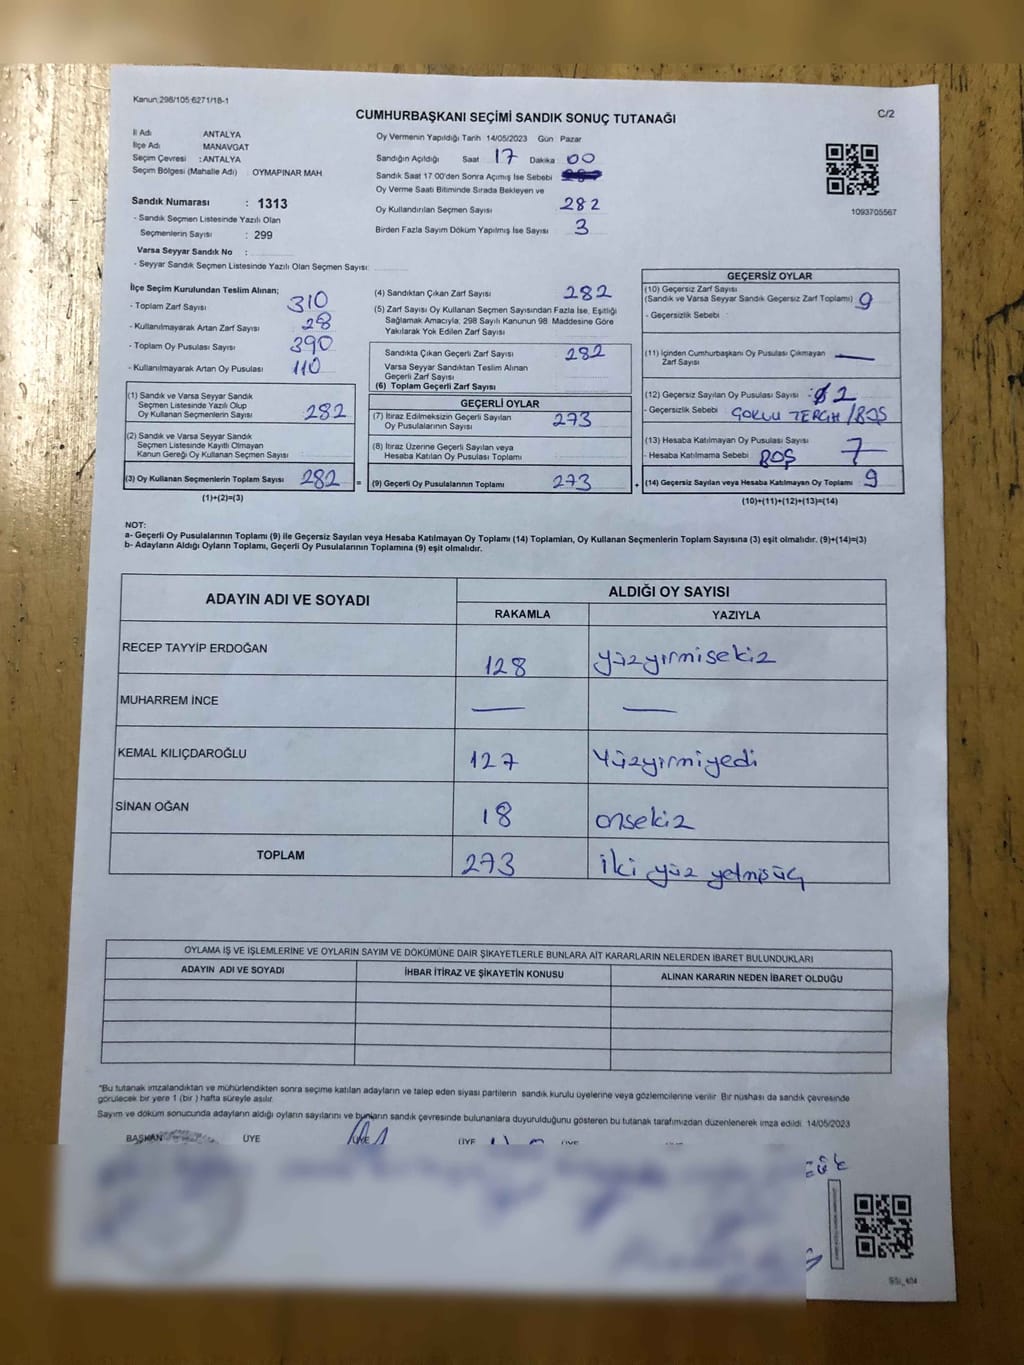 Kanun;298/105 6271/18-1
CUMHURBAŞKANI SEÇİMİ SANDIK SONUÇ TUTANAĞI
C/2
İl Adı ANTALYA
İlçe Adı MANAVGAT
Seçim Çevresi : ANTALYA
Seçim Bölgesi (Mahalle Adı) OYMAPINAR MAH
Oy Vermenin Yapıldığı Tarih 14/05/2023 Gün Pazar
Sandığın Açıldığı Saat 17 Dakika 00
Sandık Saat 17 00'den Sonra Açımış İse Sebebi
Oy Verme Saati Bitiminde Sırada Bekleyen ve
Oy Kullandırılan Seçmen Sayısı 282
Birden Fazla Sayım Döküm Yapılmış İse Sayısı 3
1093705567
Sandık Numarası : 1313
- Sandık Seçmen Listesinde Yazılı Olan
Seçmenlerin Sayısı : 299
Varsa Seyyar Sandık No :
- Seyyar Sandık Seçmen Listesinde Yazılı Olan Seçmen Sayısı:
İlçe Seçim Kurulundan Teslim Alınan;
- Toplam Zarf Sayısı 310
- Kullanılmayarak Artan Zarf Sayısı 28
- Toplam Oy Pusulası Sayısı 390
- Kullanılmayarak Artan Oy Pusulası 110
(1) Sandık ve Varsa Seyyar Sandık
Seçmen Listesinde Yazılı Olup
Oy Kullanan Seçmenlerin Sayısı 282
(2) Sandık ve Varsa Seyyar Sandık
Seçmen Listesinde Kayıtlı Olmayan
Kanun Gereği Oy Kullanan Seçmen Sayısı
(3) Oy Kullanan Seçmenlerin Toplam Sayısı 282 =
(1)+(2)=(3)
(4) Sandıktan Çıkan Zarf Sayısı 282
(5) Zarf Sayısı Oy Kullanan Seçmen Sayısından Fazla İse, Eşitliği
Sağlamak Amacıyla; 298 Sayılı Kanunun 98 Maddesine Göre
Yakılarak Yok Edilen Zarf Sayısı
Sandıkta Çıkan Geçerli Zarf Sayısı 282
Varsa Seyyar Sandıktan Teslim Alınan
Geçerli Zarf Sayısı
(6) Toplam Geçerli Zarf Sayısı
GEÇERLİ OYLAR
(7) İtiraz Edilmeksizin Geçerli Sayılan
Oy Pusulalarının Sayısı 273
(8) İtiraz Üzerine Geçerli Sayılan veya
Hesaba Katılan Oy Pusulası Toplamı
(9) Geçerli Oy Pusulalarının Toplamı 273 +
GEÇERSİZ OYLAR
(10) Geçersiz Zarf Sayısı
(Sandık ve Varsa Seyyar Sandık Geçersiz Zarf Toplamı) 9
- Geçersizlik Sebebi :
(11) İçinden Cumhurbaşkanı Oy Pusulası Çıkmayan —
Zarf Sayısı
(12) Geçersiz Sayılan Oy Pusulası Sayısı : 2
- Geçersizlik Sebebi : ÇOKLU TERCİH/BOŞ
(13) Hesaba Katılmayan Oy Pusulası Sayısı 7
- Hesaba Katılmama Sebebi BOŞ
(14) Geçersiz Sayılan veya Hesaba Katılmayan Oy Toplamı 9
(10)+(11)+(12)+(13)=(14)
NOT:
a- Geçerli Oy Pusulalarının Toplamı (9) ile Geçersiz Sayılan veya Hesaba Katılmayan Oy Toplamı (14) Toplamları, Oy Kullanan Seçmenlerin Toplam Sayısına (3) eşit olmalıdır. (9)+(14)=(3)
b- Adayların Aldığı Oyların Toplamı, Geçerli Oy Pusulalarının Toplamına (9) eşit olmalıdır.
ADAYIN ADI VE SOYADI
ALDIĞI OY SAYISI
RAKAMLA YAZIYLA
RECEP TAYYİP ERDOĞAN 128 yüzyirmisekiz
MUHARREM İNCE — —
KEMAL KILIÇDAROĞLU 127 Yüzyirmiyedi
SİNAN OĞAN 18 onsekiz
TOPLAM 273 iki yüz yetmişüç
OYLAMA İŞ VE İŞLEMLERİNE VE OYLARIN SAYIM VE DÖKÜMÜNE DAİR ŞİKAYETLERLE BUNLARA AİT KARARLARIN NELERDEN İBARET BULUNDUKLARI
ADAYIN ADI VE SOYADI İHBAR İTİRAZ VE ŞİKAYETİN KONUSU ALINAN KARARIN NEDEN İBARET OLDUĞU
"Bu tutanak imzalandıktan ve mühürlendikten sonra seçime katılan adayların ve talep eden siyası partilerin sandık kurulu üyelerine veya gözlemcilerine verilir. Bir nüshası da sandık çevresinde
görülecek bir yere 1 (bir ) hafta süreyle asılır.
Sayım ve döküm sonucunda adayların aldığı oyların sayılarını ve bunların sandık çevresinde bulunanlara duyurulduğunu gösteren bu tutanak tarafımızdan düzenlenerek imza edildi. 14/05/2023
BAŞKAN ÜYE ÜYE ÜYE ÜYE